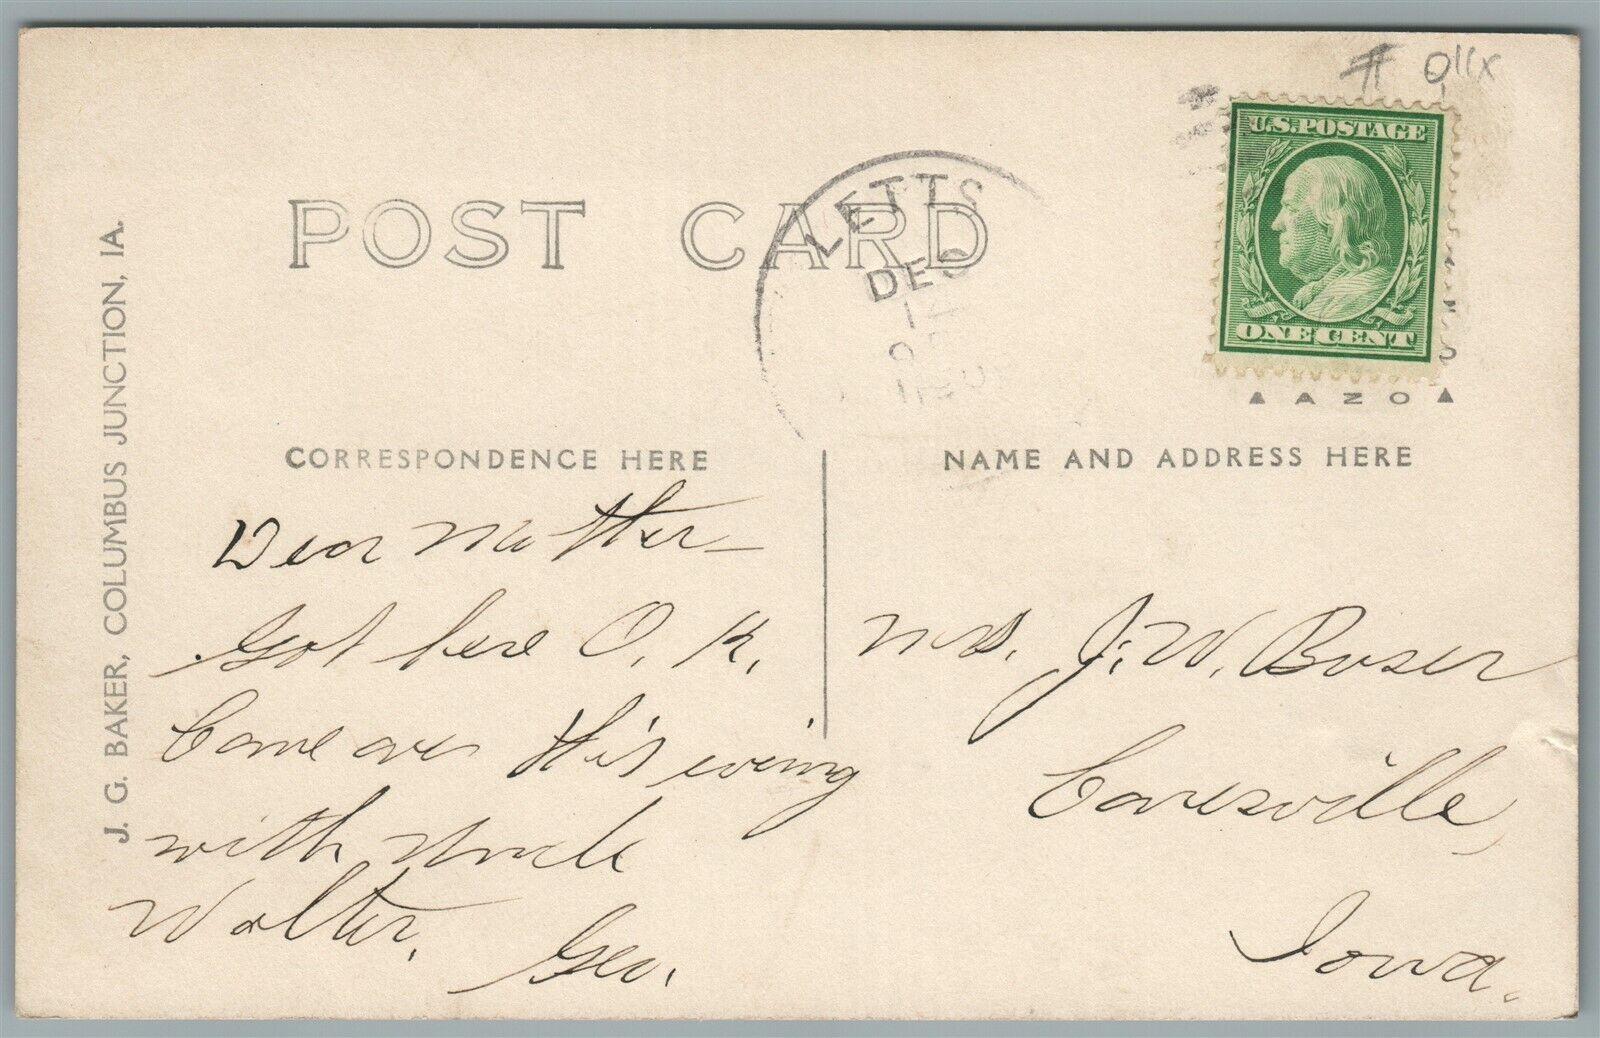 # 011x
U.S. POSTAGE
ONE CENT
AZO
LETTS
DEC
POST CARD
J. G. BAKER, COLUMBUS JUNCTION, IA.
CORRESPONDENCE HERE
Dear Mother—
Got here O.K.
Came over this eveing
with Uncle
Walter.
Geo.
NAME AND ADDRESS HERE
Mrs. J. W. Buser
Conesville,
Iowa.